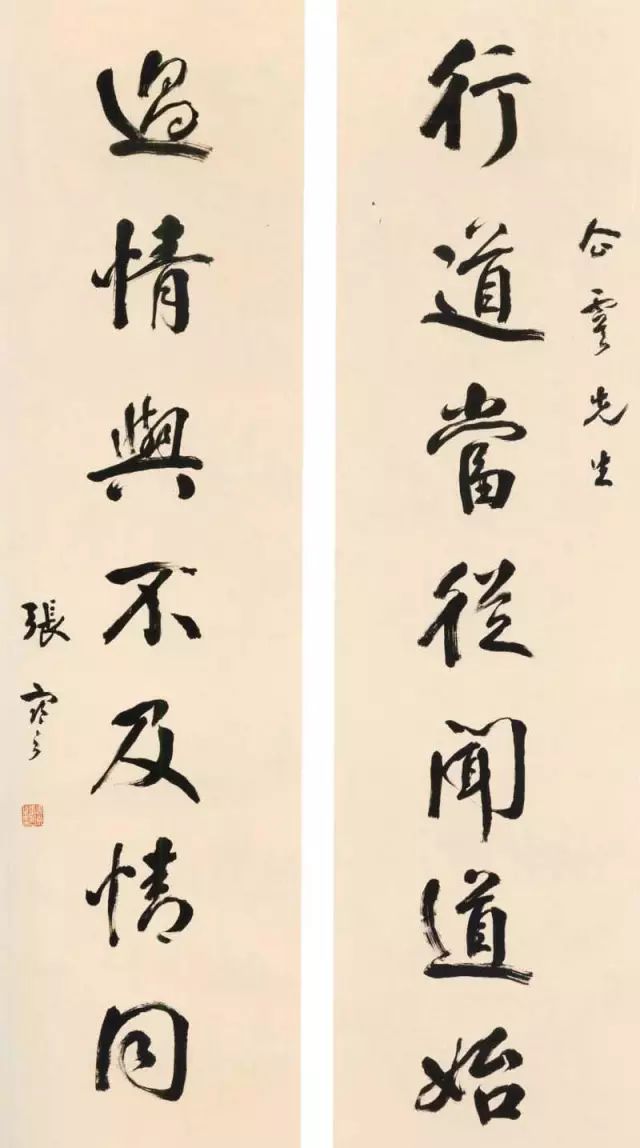 先生
行道當從聞道始
過情與不及情同
張謇